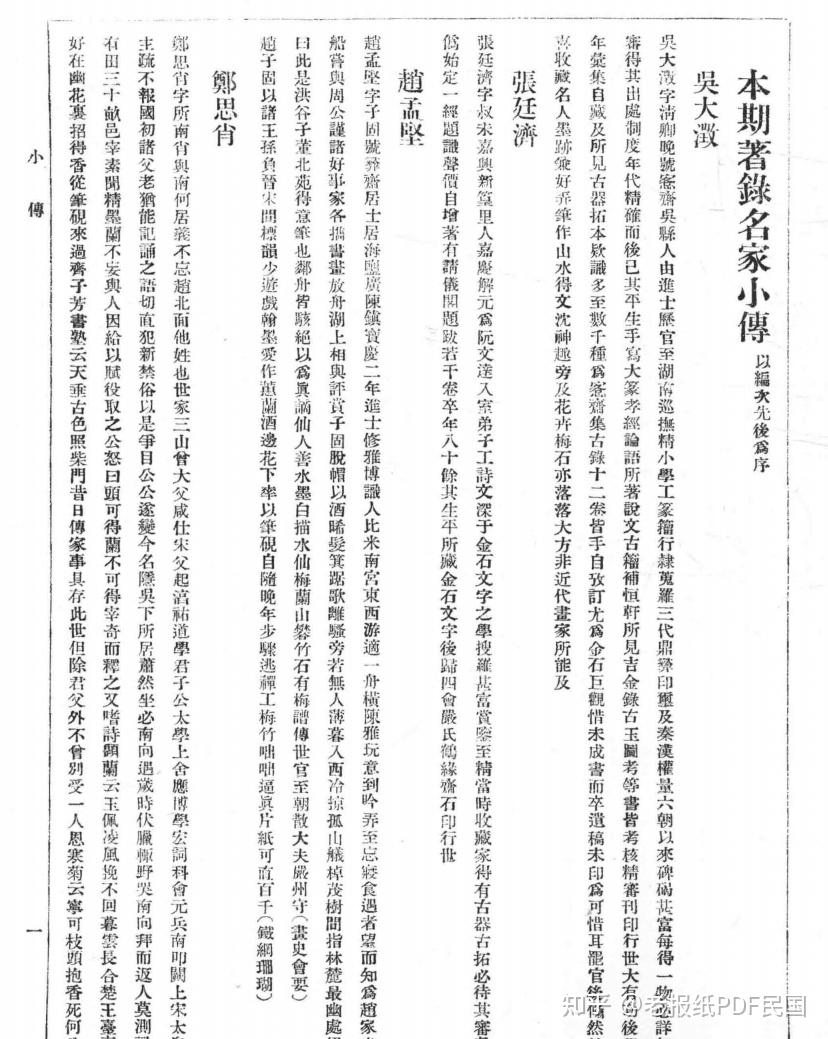 本期著錄名家小傳 以編次先後爲序
吳大澂
吳大澂字淸卿晚號愙齋吳縣人由進士歷官至湖南巡撫精小學工篆籀行隸蒐羅三代鼎彝印璽及秦漢權量六朝以來碑碣甚富每得一物必詳
審得其出處制度年代精確而後已其平生手寫大篆孝經論語所著說文古籀補恒軒所見吉金錄古玉圖考等書皆考核精審刊印行世大有
年彙集自藏及所見古器拓本欵識多至數千種爲愙齋集古錄十二卷皆手自攷訂尤爲金石巨觀惜未成書而卒遺稿未印爲可惜耳罷官後
喜收藏名人墨跡兼好弄筆作山水得文沈神趣旁及花卉梅石亦落落大方非近代畫家所能及
張廷濟
張廷濟字叔未嘉興新篁里人嘉慶解元爲阮文達入室弟子工詩文深于金石文字之學搜羅甚富賞鑒至精當時收藏家得有古器古拓必待其審
僞始定一經題識聲價自增著有請儀閣題跋若干卷卒年八十餘其生平所藏金石文字後歸四會嚴氏鶴緣齋石印行世
趙孟堅
趙孟堅字子固號彝齋居士居海鹽廣陳鎮寶慶二年進士修雅博識人比米南宮東西游適一舟橫陳雅玩意到吟弄至忘寢食遇者望而知爲趙家
船嘗與周公謹諸好事家各攜書畫放舟湖上相與評賞子固脫帽以酒晞髮箕踞歌離騷旁若無人薄暮入西泠掠孤山艤棹茂樹間指林麓最幽處
曰此是洪谷子董北苑得意筆也鄰舟皆駭絕以爲眞謫仙人善水墨白描水仙梅蘭山礬竹石有梅譜傳世官至朝散大夫嚴州守（畫史會要）
趙子固以諸王孫負晉宋間標韻少遊戲翰墨愛作蕙蘭酒邊花下率以筆硯自隨晚年步驟逃禪工梅竹咄咄逼眞片紙可直百千（鐵網珊瑚）
鄭思肖
鄭思肖字所南肖與南何居義不忘趙北面他姓也世家三山曾大父咸仕宋父起淓祐道學君子公太學上舍應博學宏詞科會元兵南叩闕上宋太
主疏不報國初諸父老猶能記誦之語切直犯新禁俗以是爭目公公遂變今名隱吳下所居蕭然坐必南向遇歲時伏臘輒野哭南向拜而返人莫測
有田三十畝邑宰素聞精墨蘭不妄與人因給以賦役取之公怒曰頭可得蘭不可得宰奇而釋之又嗜詩題蘭云玉佩凌風挽不回暮雲長合楚王臺
好在幽花裏招得香從筆硯來過齊子芳書塾云天垂古色照柴門昔日傳家事具存此世但除君父外不曾別受一人恩寒菊云寧可枝頭抱香死何
小傳
一
知乎 @老报纸PDF民国